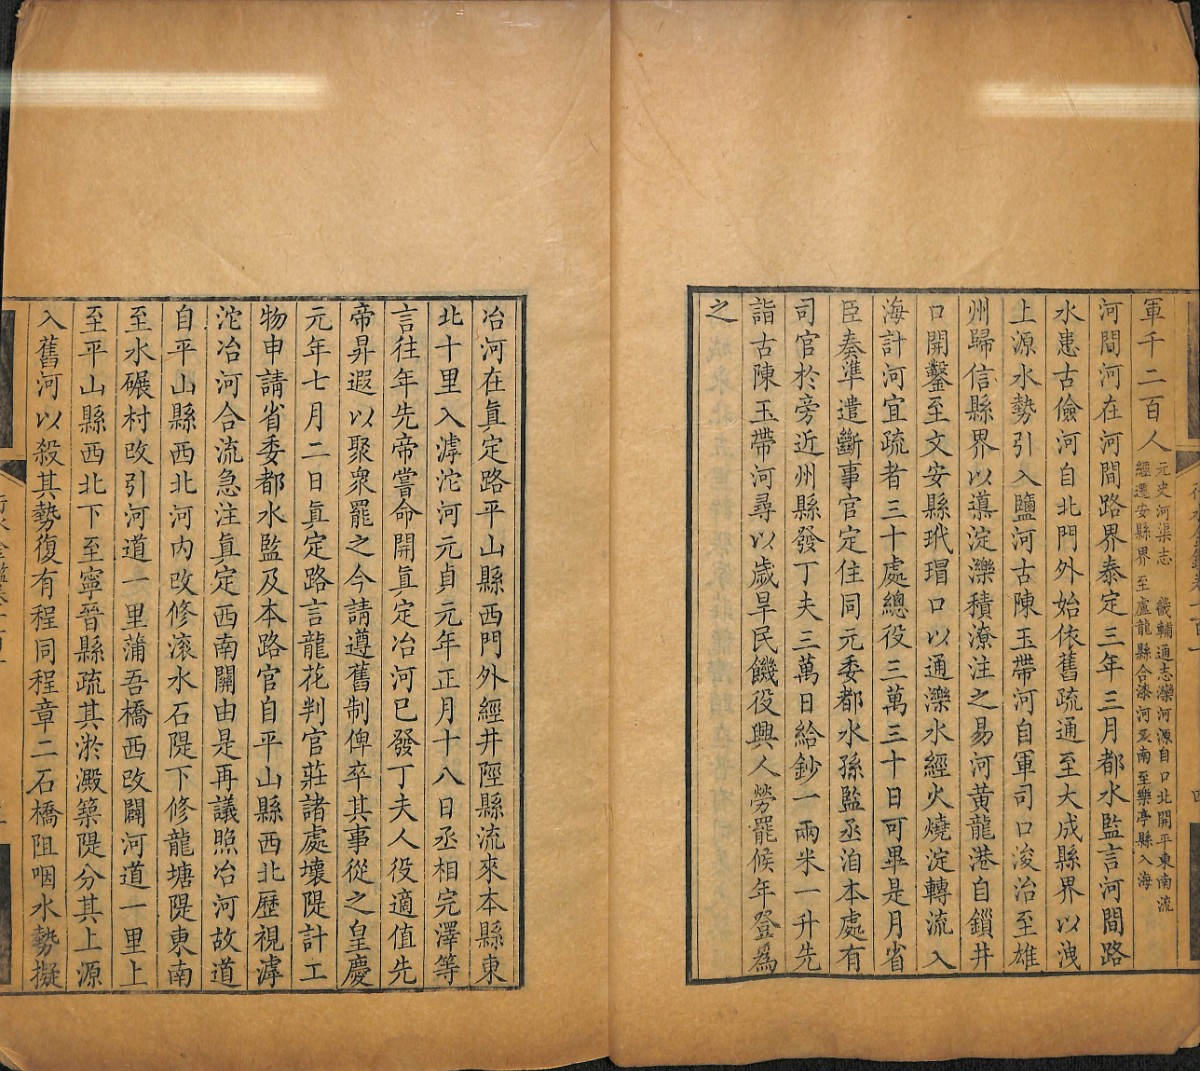 軍千二百人元史河渠志 畿輔通志灤河源自口北開平東南流
經遷安縣界至盧龍縣合漆河又南至樂亭縣入海
河間河在河間路界泰定三年三月都水監言河間路
水患古儉河自北門外始依舊疏通至大成縣界以洩
上源水勢引入鹽河古陳玉帶河自軍司口浚治至雄
州歸信縣界以導淀灤積潦注之易河黃龍港自鎖井
口開鑿至文安縣玳瑁口以通灤水經火燒淀轉流入
海計河宜疏者三十處總役三萬三十日可畢是月省
臣奏準遣斷事官定住同元委都水孫監丞洎本處有
司官於旁近州縣發丁夫三萬日給鈔一兩米一升先
詣古陳玉帶河尋以歲旱民饑役興人勞罷候年登為
之
冶河在眞定路平山縣西門外經井陘縣流來本縣東
北十里入滹沱河元貞元年正月十八日丞相完澤等
言往年先帝嘗命開眞定冶河已發丁夫人役適值先
帝昇遐以聚衆罷之今請遵舊制俾卒其事從之皇慶
元年七月二日眞定路言龍花判官莊諸處壞隄計工
物申請省委都水監及本路官自平山縣西北歷視滹
沱冶河合流急注眞定西南關由是再議照冶河故道
自平山縣西北河内改修滚水石隄下修龍塘隄東南
至水碾村改引河道一里蒲吾橋西改闢河道一里上
至平山縣西北下至寧晉縣疏其淤澱築隄分其上源
入舊河以殺其勢復有程同程章二石橋阻咽水勢擬